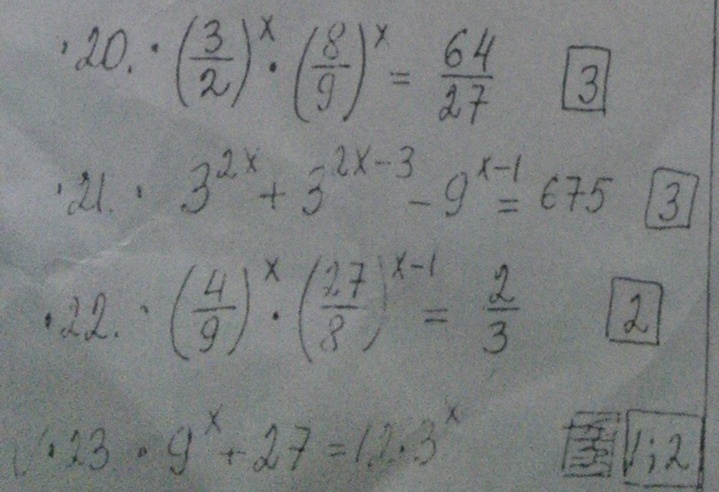 ·20.· (3/2)^x · (8/9)^x = 64/27 3
·21.· 3^(2x) + 3^(2x-3) - 9^(x-1) = 675 3
·22.· (4/9)^x · (27/8)^(x-1) = 2/3 2
·23·9^x + 27 = 12·3^x 1;2